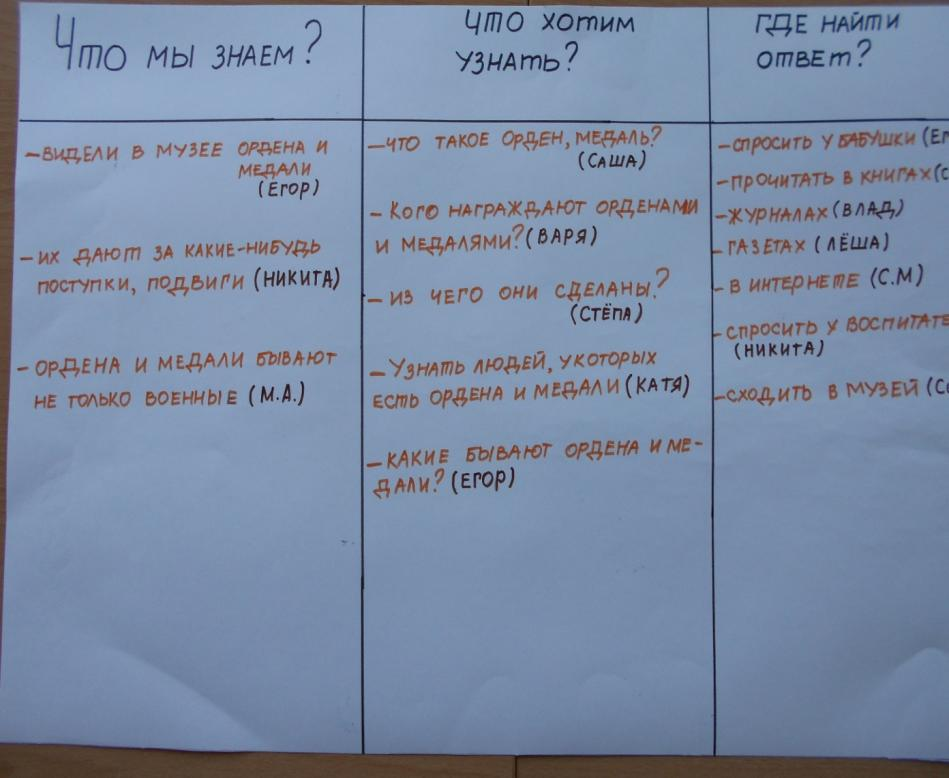 Что мы знаем?
- видели в музее ордена и
медали
(Егор)
- их дают за какие-нибудь
поступки, подвиги (Никита)
- ордена и медали бывают
не только военные (М.А.)
Что хотим
узнать?
- что такое орден, медаль?
(Саша)
- Кого награждают орденами
и медалями? (Варя)
- из чего они сделаны?
(Стёпа)
- Узнать людей, укоторых
есть ордена и медали (Катя)
- какие бывают ордена и ме-
дали? (Егор)
Где найти
ответ?
- спросить у бабушки
- прочитать в книгах
- журналах (Влад)
- газетах (Лёша)
- в интернете (С.М)
- спросить у
(Никита)
- сходить в музей